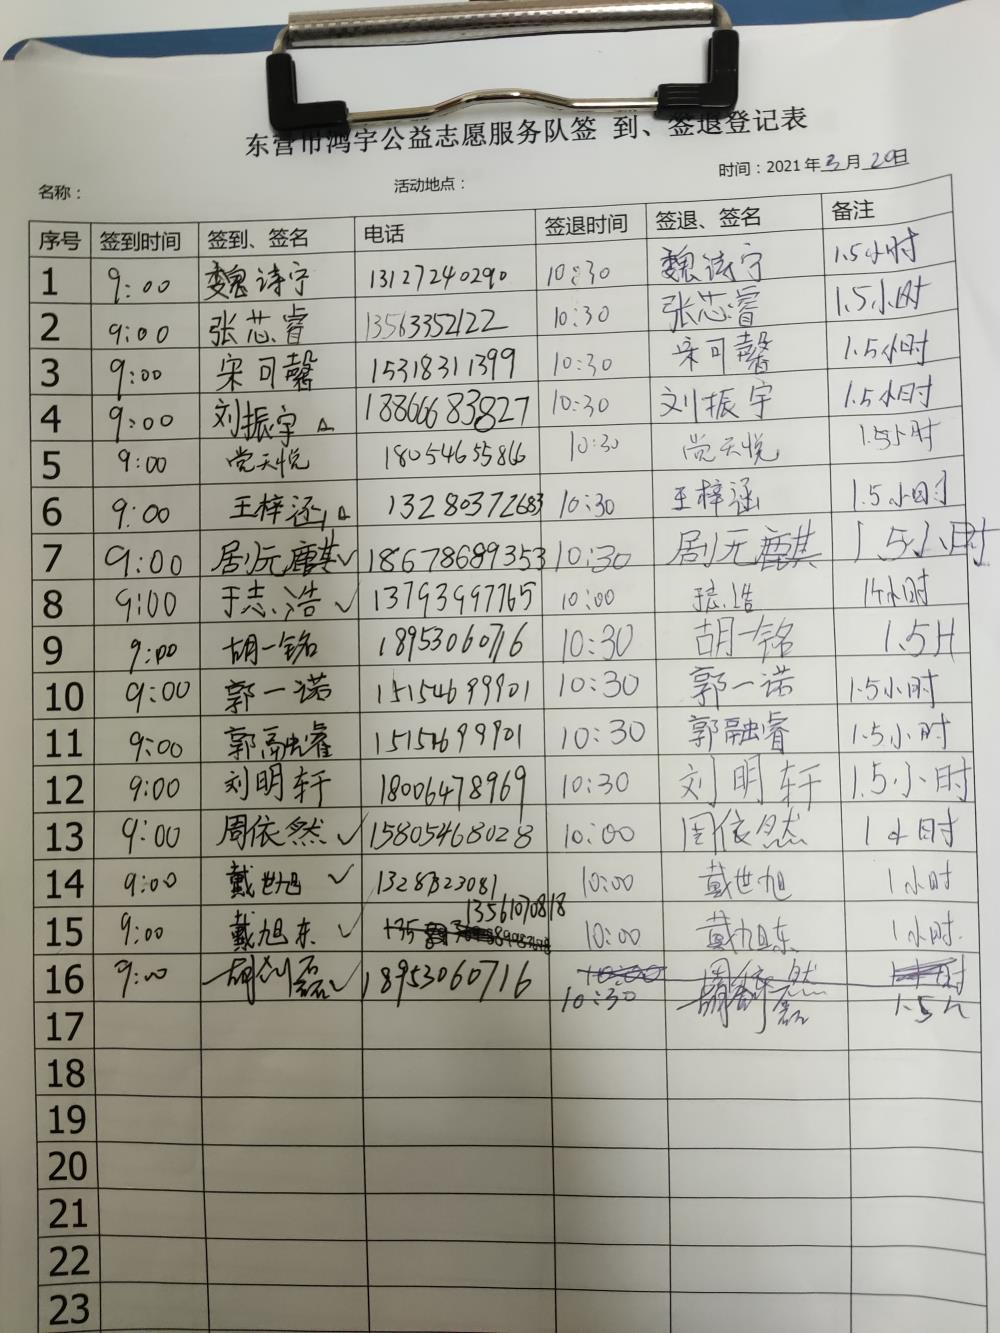 东营市鸿宇公益志愿服务队签 到、签退登记表
名称： 活动地点： 时间：2021年3月20日
序号 签到时间 签到、签名 电话 签退时间 签退、签名 备注
1 9:00 魏诗宁 13127240290 10:30 魏诗宁 1.5小时
2 9:00 张芯睿 13563352122 10:30 张芯睿 1.5小时
3 9:00 宋可馨 15318311399 10:30 宋可馨 1.5小时
4 9:00 刘振宇 18866683827 10:30 刘振宇 1.5小时
5 9:00 党天悦 18054655866 10:30 党天悦 1.5小时
6 9:00 王梓涵 13280372683 10:30 王梓涵 1.5小时
7 9:00 剧元麒 18678689353 10:30 剧元麒 1.5小时
8 9:00 于志浩 13793997765 10:00 于志浩 1小时
9 9:00 胡一铭 18953060716 10:30 胡一铭 1.5H
10 9:00 郭一诺 15154699901 10:30 郭一诺 1.5小时
11 9:00 郭融睿 15154699901 10:30 郭融睿 1.5小时
12 9:00 刘明轩 18006478969 10:30 刘明轩 1.5小时
13 9:00 周依然 15805468028 10:00 周依然 1小时
14 9:00 戴世旭 1328323081 10:00 戴世旭 1小时
15 9:00 戴旭东 13561070818 10:00 戴旭东 1小时
16 9:00 18953060716 10:30 1.5h
17
18
19
20
21
22
23